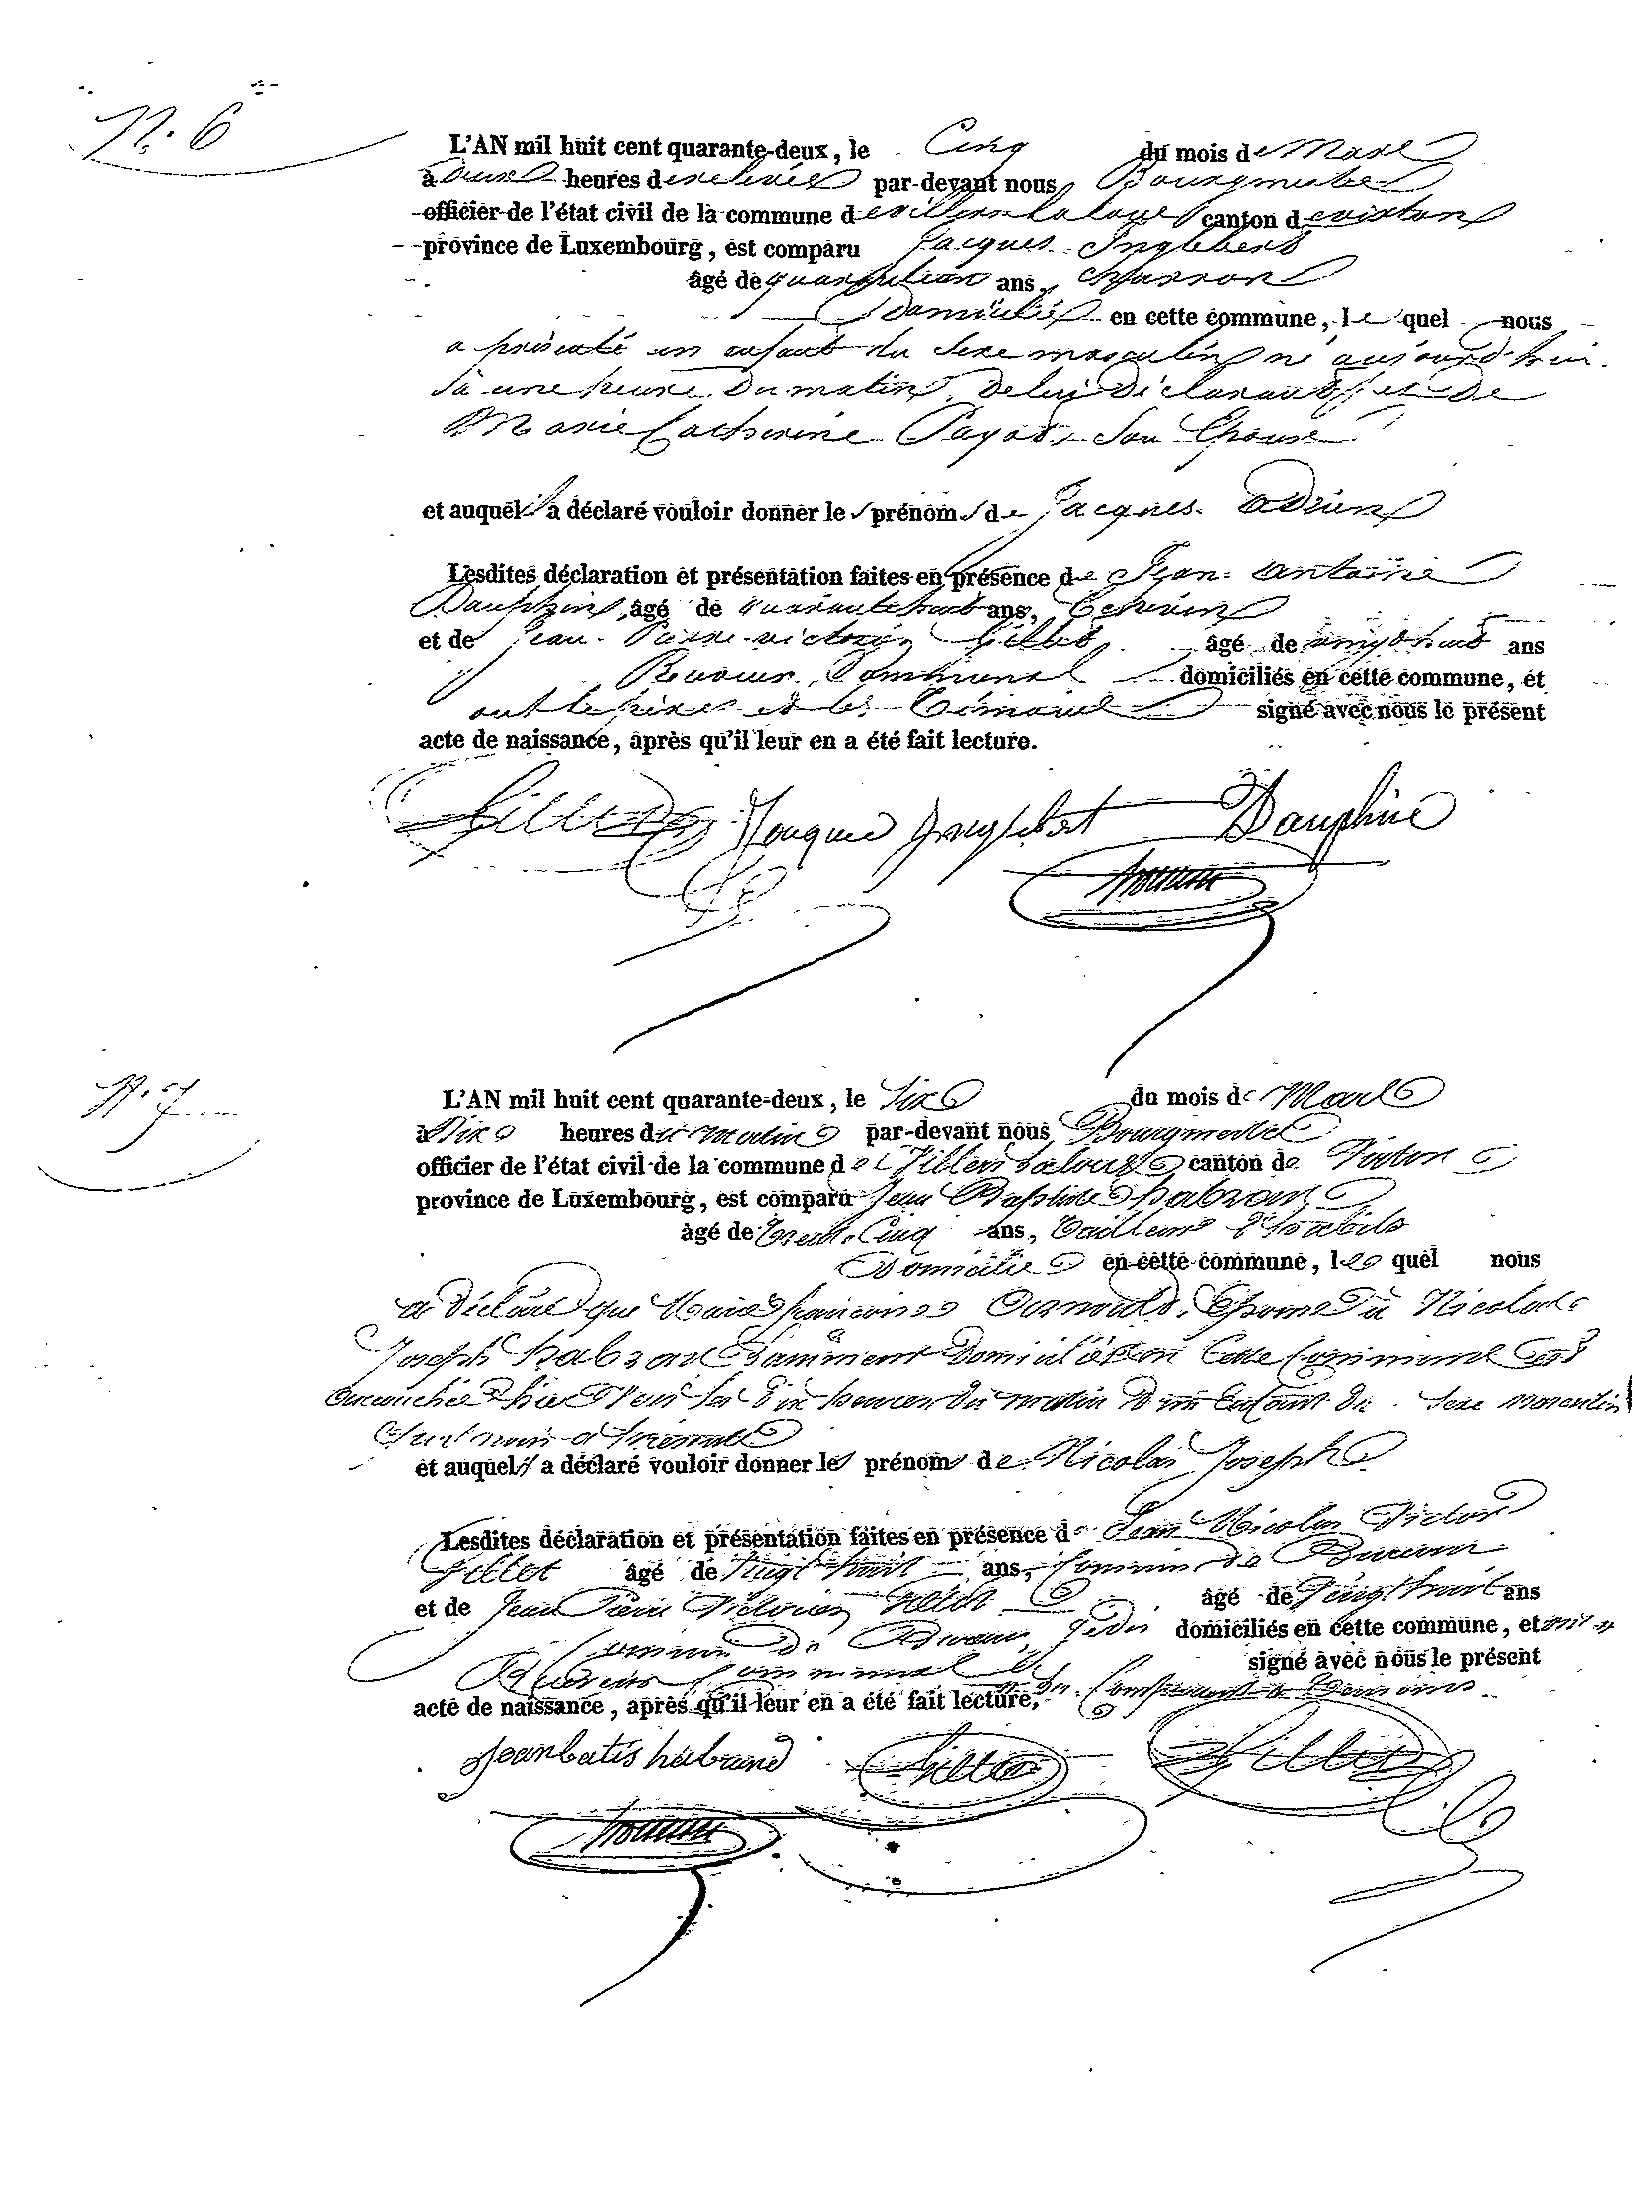 N.° 6
L'AN mil huit cent quarante-deux, le Cinq du mois de Mars
à deux heures de relevée par-devant nous Bourgmestre
officier de l'état civil de la commune de villers la loue canton de virton
province de Luxembourg, est comparu Jacques Inglebert
âgé de ans, Charron
Domicilié en cette commune, le quel nous
a présenté un enfant du Sexe masculin né aujourd'hui
à une heure du matin de lui Déclarant et de
Marie Catherine Payot, Son Epouse
et auquel il a déclaré vouloir donner les prénoms de Jacques Adrien
Lesdites déclaration et présentation faites en présence de Jean Antoine
Dauphin, âgé de quarante huit ans,
et de Jean Pierre victorien Gillet âgé de vingt huit ans
Receveur Communal domiciliés en cette commune, et
ont le père et les Témoins signé avec nous le présent
acte de naissance, après qu'il leur en a été fait lecture.
Gillet Jacques Inglebert Dauphin
N.° 7
L'AN mil huit cent quarante-deux, le Six du mois de Mars
à Dix heures du matin par-devant nous Bourgmestre
officier de l'état civil de la commune de Villers la loue canton de Virton
province de Luxembourg, est comparu Jean Baptiste habran
âgé de Trente Cinq ans, Tailleur d'habits
Domicilié en cette commune, le quel nous
a Déclaré que Marie françoise Arnould, Epouse à Nicolas
Joseph habran Domicilié en Cette Commune est
accouchée hier vers les Dix heures du matin D'un Enfant du Sexe masculin
et auquel il a déclaré vouloir donner les prénoms de Nicolas Joseph
Lesdites déclaration et présentation faites en présence de Jean Nicolas Victor
Gillet âgé de Vingt huit ans, Commis de Bureau
et de Jean Pierre Victorien Gillet âgé de Vingt huit ans
domiciliés en cette commune, et ont
Receveur Communal signé avec nous le présent
acte de naissance, après qu'il leur en a été fait lecture.
Jean batis habrand Gillet Gillet